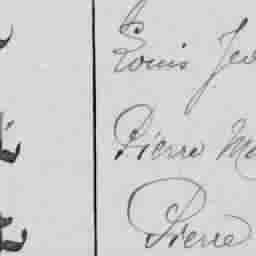 Louis Je
Pierre Ma
Pierre